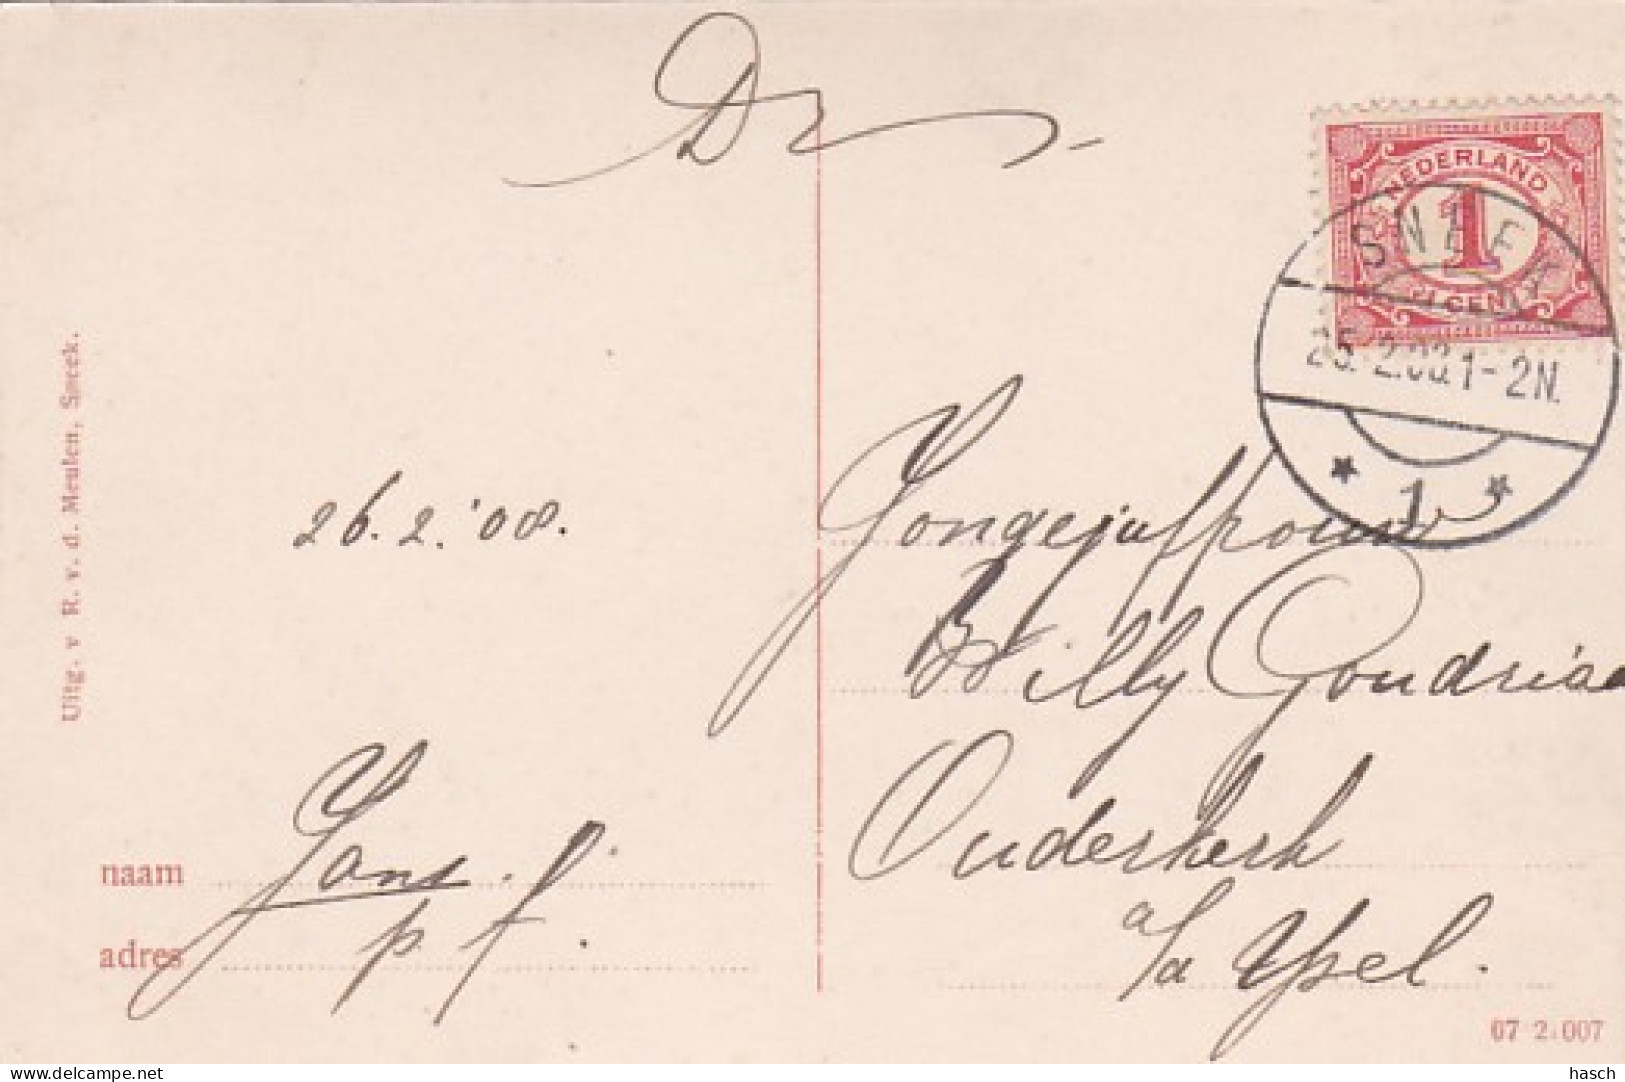 Dr
NEDERLAND
1
CENT
SNEEK
25.2.08.1-2N.
1
26.2.'08.
Jongejuffrouw
Willy Goudriaa
Ouderkerk
a/d Ysel.
naam Jans.
adres p. f.
Uitg. v R. v. d. Meulen, Sneek.
07 2.007
hasch